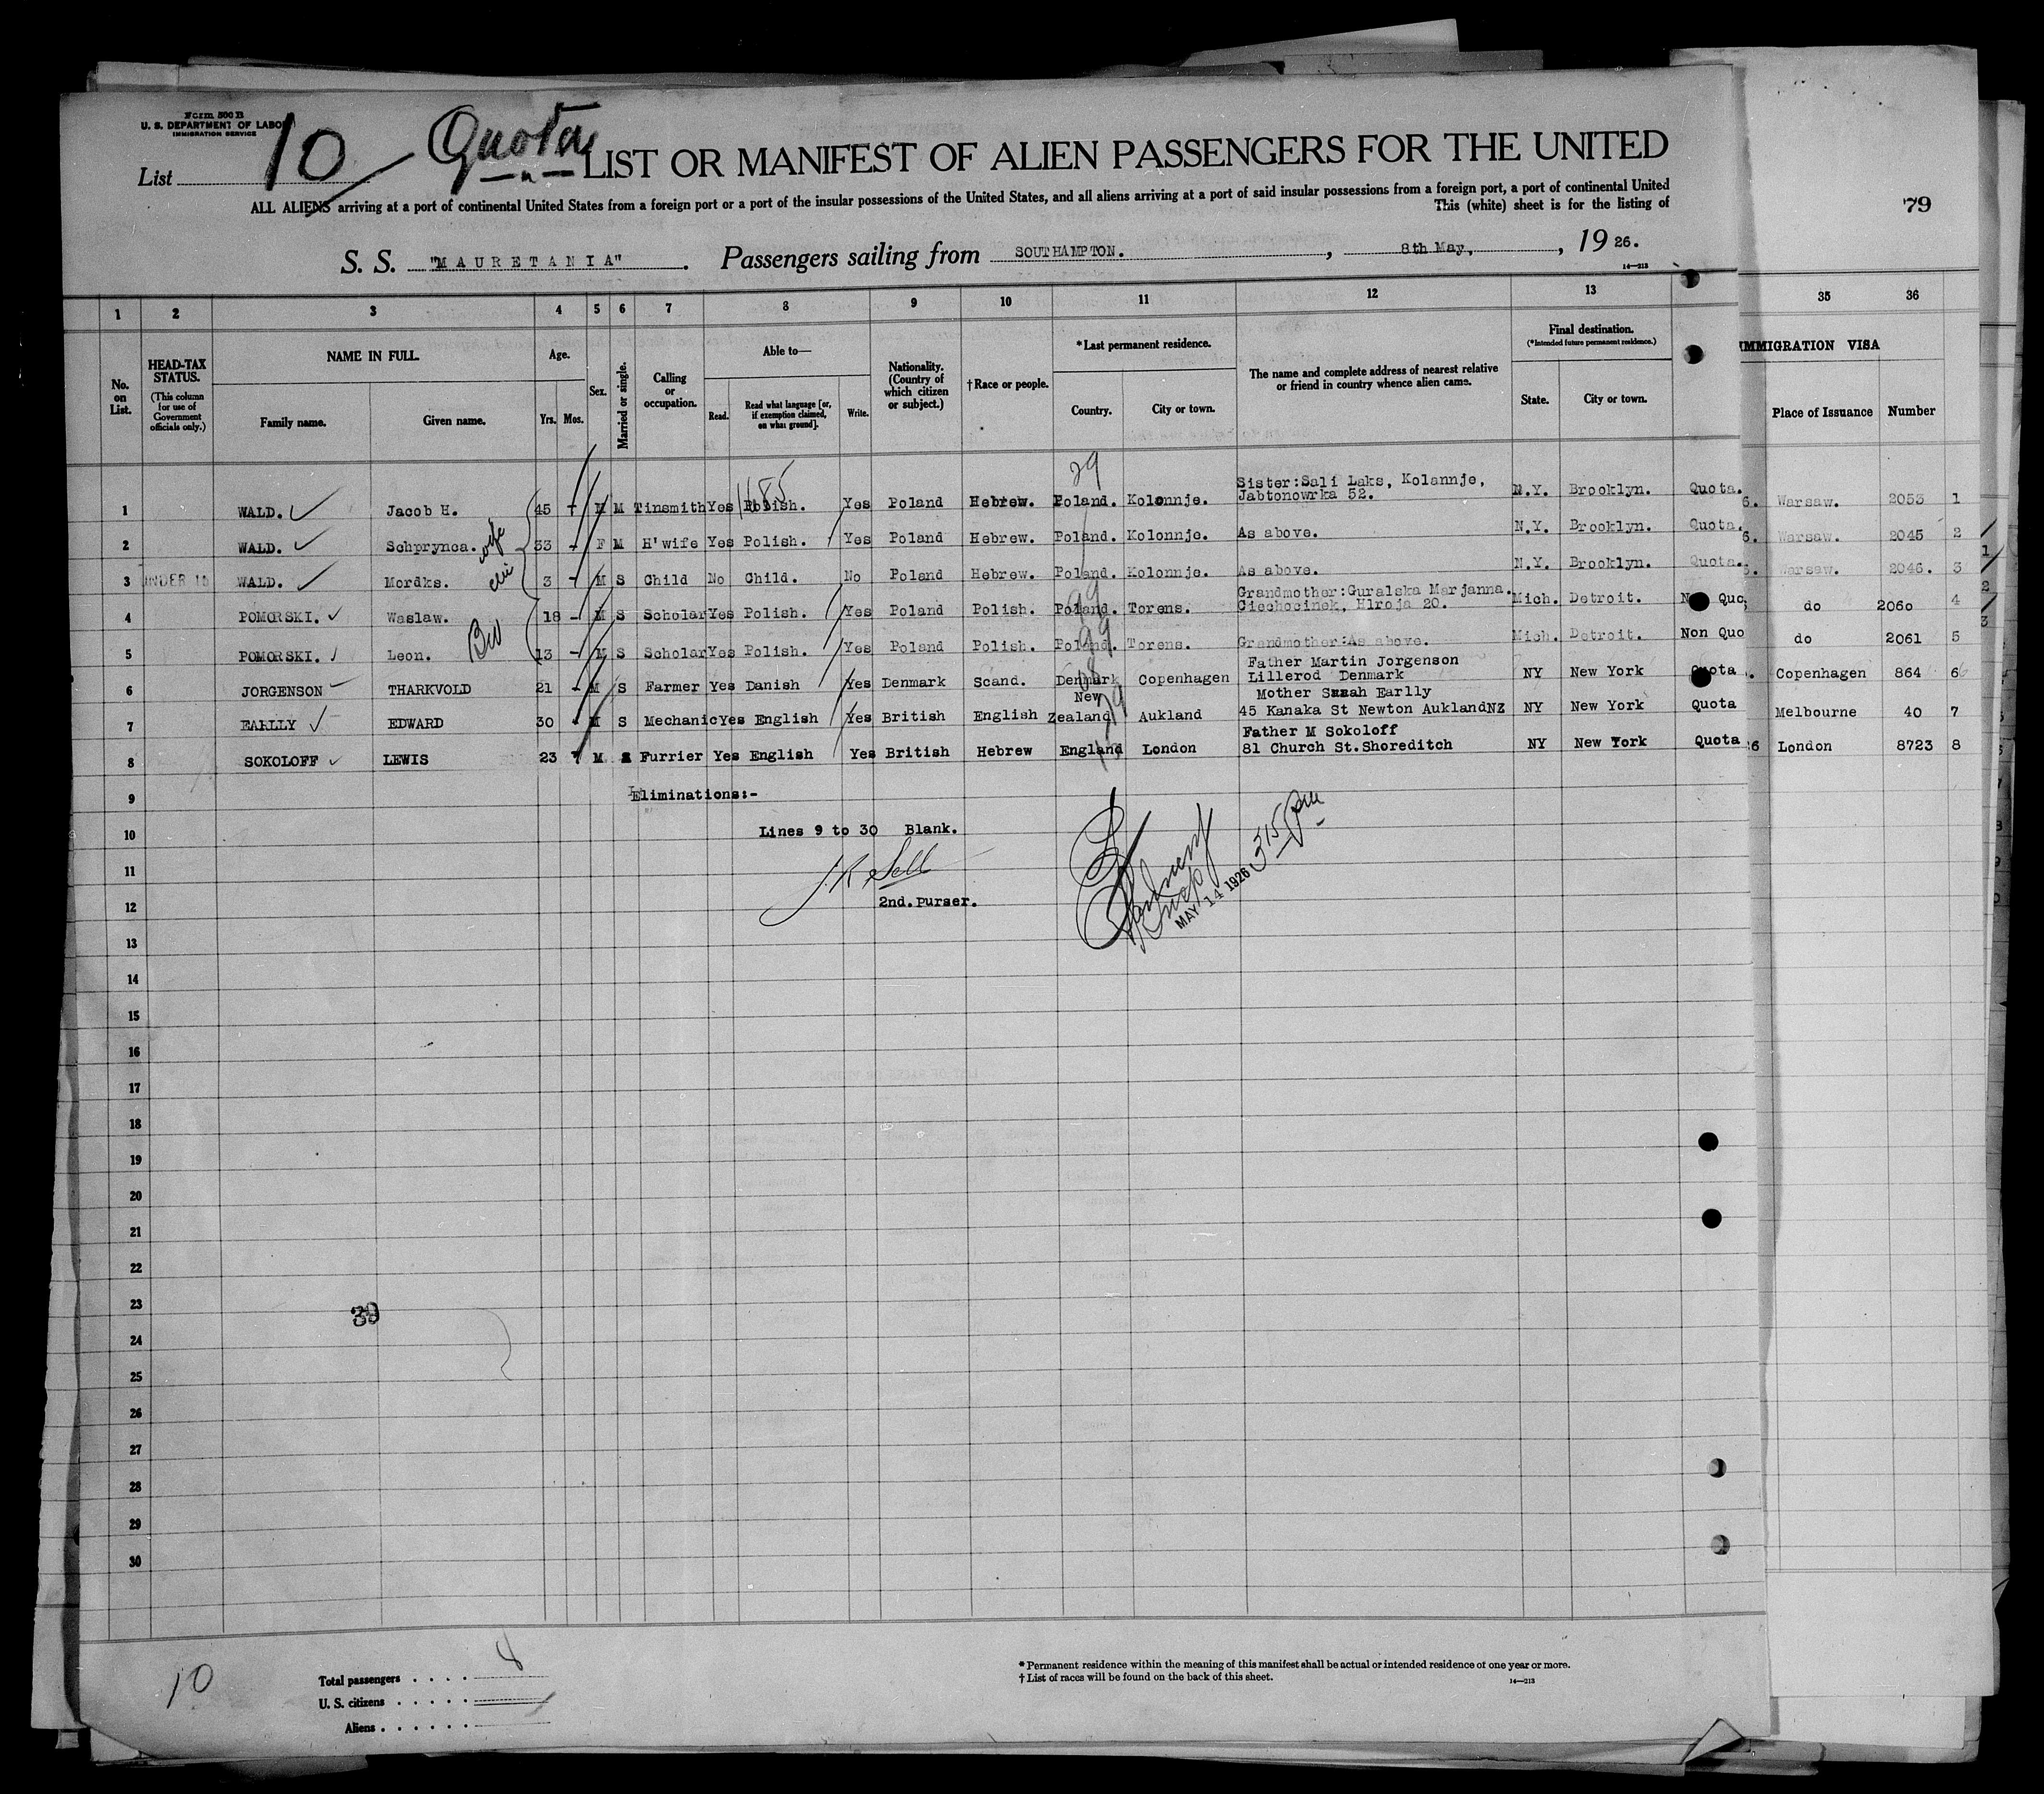 Form 500 B
U. S. DEPARTMENT OF LABOR
IMMIGRATION SERVICE
List 10
Quota
LIST OR MANIFEST OF ALIEN PASSENGERS FOR THE UNITED
ALL ALIENS arriving at a port of continental United States from a foreign port or a port of the insular possessions of the United States, and all aliens arriving at a port of said insular possessions from a foreign port, a port of continental United
This (white) sheet is for the listing of
79
S. S. "MAURETANIA". Passengers sailing from SOUTHAMPTON., 8th May, , 19 26.
14—213
1 2 3 4 5 6 7 8 9 10 11 12 13 35 36
No. on List.
HEAD-TAX STATUS.
(This column for use of Government officials only.)
NAME IN FULL.
Family name. Given name.
Age.
Yrs. Mos.
Sex.
Married or single.
Calling or occupation.
Able to—
Read. Read what language [or, if exemption claimed, on what ground]. Write.
Nationality. (Country of which citizen or subject.)
† Race or people.
*Last permanent residence.
Country. City or town.
The name and complete address of nearest relative or friend in country whence alien came.
Final destination.
(*Intended future permanent residence.)
State. City or town.
IMMIGRATION VISA
Place of Issuance Number
29
1 WALD. Jacob H. 45 - M M Tinsmith Yes Polish. Yes Poland Hebrew. Poland. Kolonnje. Sister:Sali Laks, Kolannje, Jabtonowrka 52. N.Y. Brooklyn. Quota. 6. Warsaw. 2053 1
2 WALD. Schprynca. wife 33 - F M H'wife Yes Polish. Yes Poland Hebrew. Poland. Kolonnje. As above. N.Y. Brooklyn. Quota. 6. Warsaw. 2045 2
3 UNDER 16 WALD. Mordks. 3 - M S Child No Child. No Poland Hebrew. Poland. Kolonnje. As above. N.Y. Brooklyn. Quota. 6. Warsaw. 2046. 3
4 POMORSKI. Waslaw. 18 - M S Scholar Yes Polish. Yes Poland Polish. Poland. Torens. Grandmother:Guralska Marjanna. Ciechocinek, Hlroja 20. Mich. Detroit. N Quo do 2060 4
5 POMORSKI. Leon. 13 - M S Scholar Yes Polish. Yes Poland Polish. Poland. Torens. Grandmother:As above. Mich. Detroit. Non Quo do 2061 5
6 JORGENSON THARKVOLD 21 - M S Farmer Yes Danish Yes Denmark Scand. Denmark Copenhagen Father Martin Jorgenson Lillerod Denmark NY New York Quota Copenhagen 864 6
7 EARLLY EDWARD 30 - M S Mechanic Yes English Yes British English New Zealand Aukland Mother Saraah Earlly 45 Kanaka St Newton AuklandNZ NY New York Quota Melbourne 40 7
8 SOKOLOFF LEWIS 23 M S Furrier Yes English Yes British Hebrew England London Father M Sokoloff 81 Church St.Shoreditch NY New York Quota 26 London 8723 8
9 Eliminations:-
10 Lines 9 to 30 Blank.
11
12 2nd. Purser.
MAY 14 1926
315 pm
13
14
15
16
17
18
19
20
21
22
23
39
24
25
26
27
28
29
30
10
Total passengers . . . . 8
U. S. citizens . . . . .
Aliens . . . . . .
* Permanent residence within the meaning of this manifest shall be actual or intended residence of one year or more.
† List of races will be found on the back of this sheet.
14—213